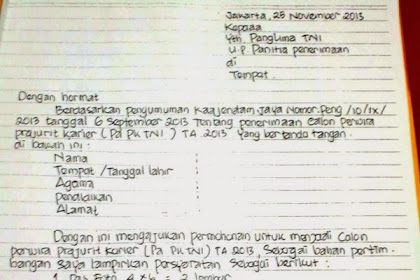 Jakarta, 25 November 2013
Kepada
Yth. Panglima TNI
u.p. Panitia penerimaan
di
Tempat.
Dengan hormat
Berdasarkan pengumuman Kaajendam Jaya Nomor: Peng /10/IX/
2013 tanggal 6 September 2013 Tentang penerimaan Calon Perwira
prajurit karier (Pa PK TNI) TA 2013 yang bertanda tangan.
di bawah ini :
Nama :
Tempat /Tanggal lahir :
Agama :
Pendidikan :
Alamat :
Dengan ini mengajukan permohonan untuk menjadi Calon
perwira prajurit karier (Pa PK TNI) TA 2013, Sebagai bahan pertim-
bangan saya lampirkan persyaratan sebagai berikut :